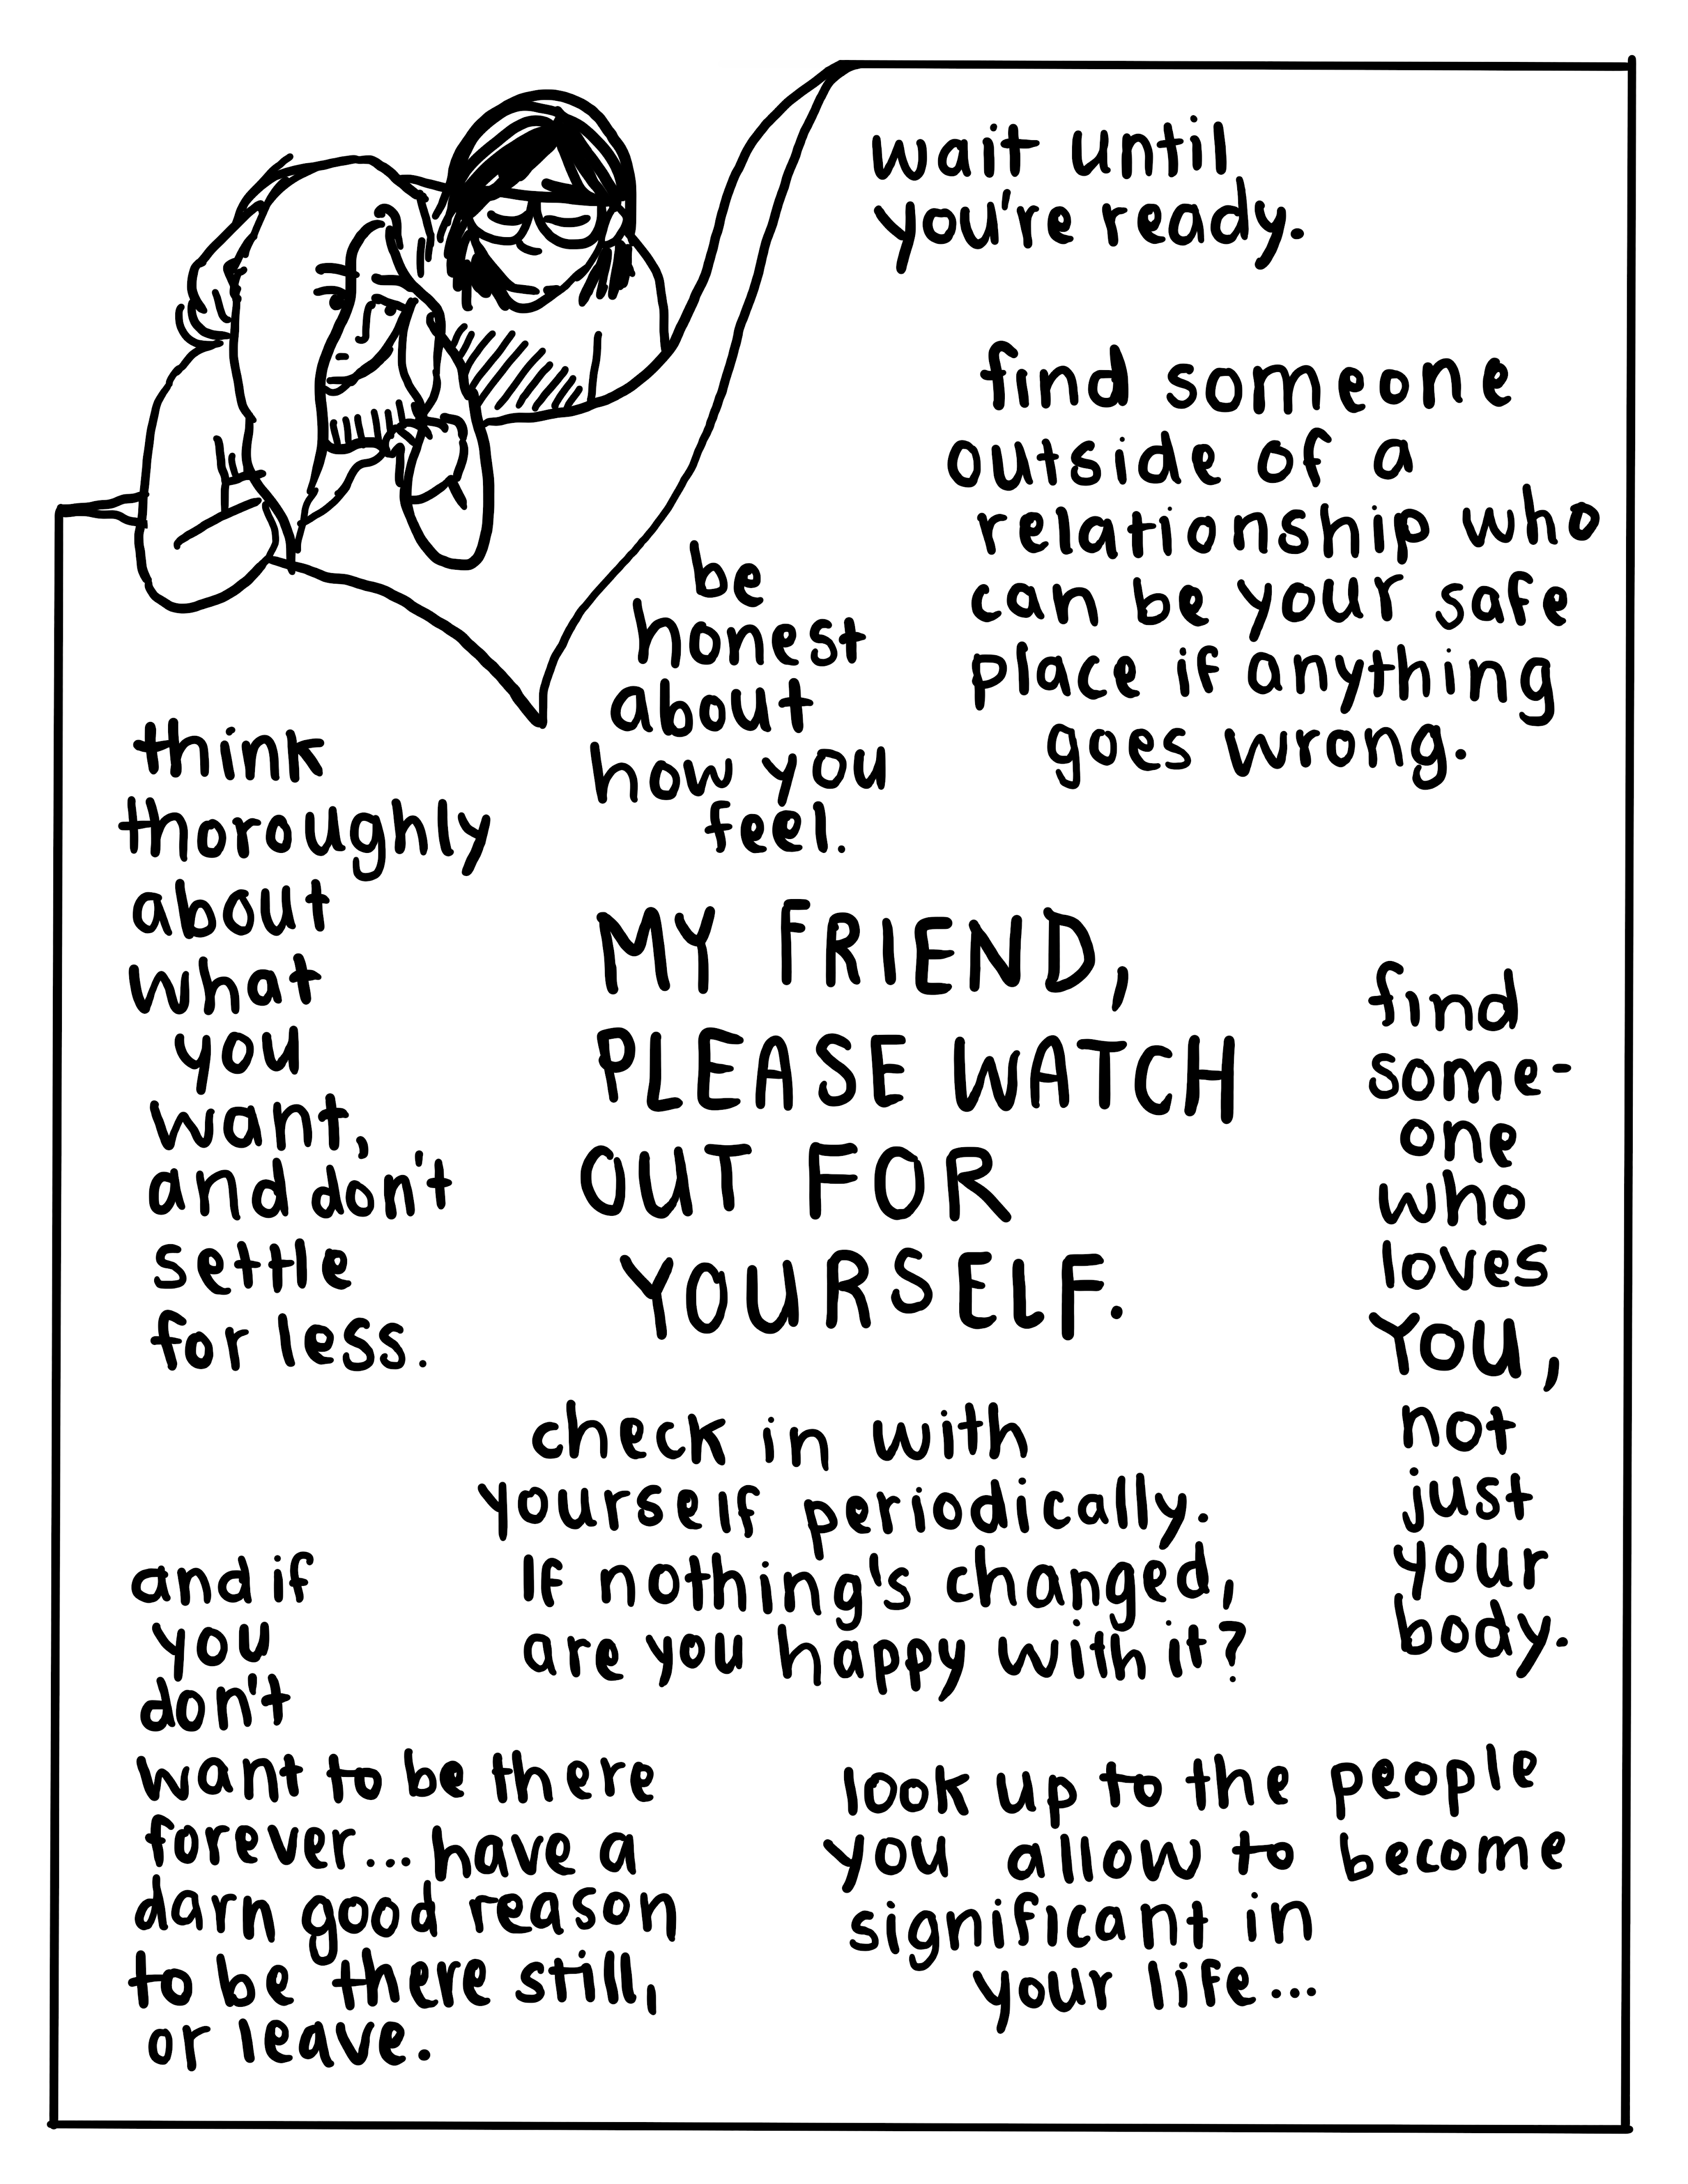 wait until
you're ready.
find someone
outside of a
relationship who
can be your safe
place if anything
goes wrong.
be
honest
about
how you
feel.
think
thoroughly
about
what
you
want,
and don't
settle
for less.
MY FRIEND,
PLEASE WATCH
OUT FOR
YOURSELF.
find
some-
one
who
loves
YOU,
not
just
your
body.
check in with
yourself periodically.
If nothing's changed,
are you happy with it?
and if
you
don't
want to be there
forever... have a
darn good reason
to be there still,
or leave.
look up to the people
you allow to become
significant in
your life...